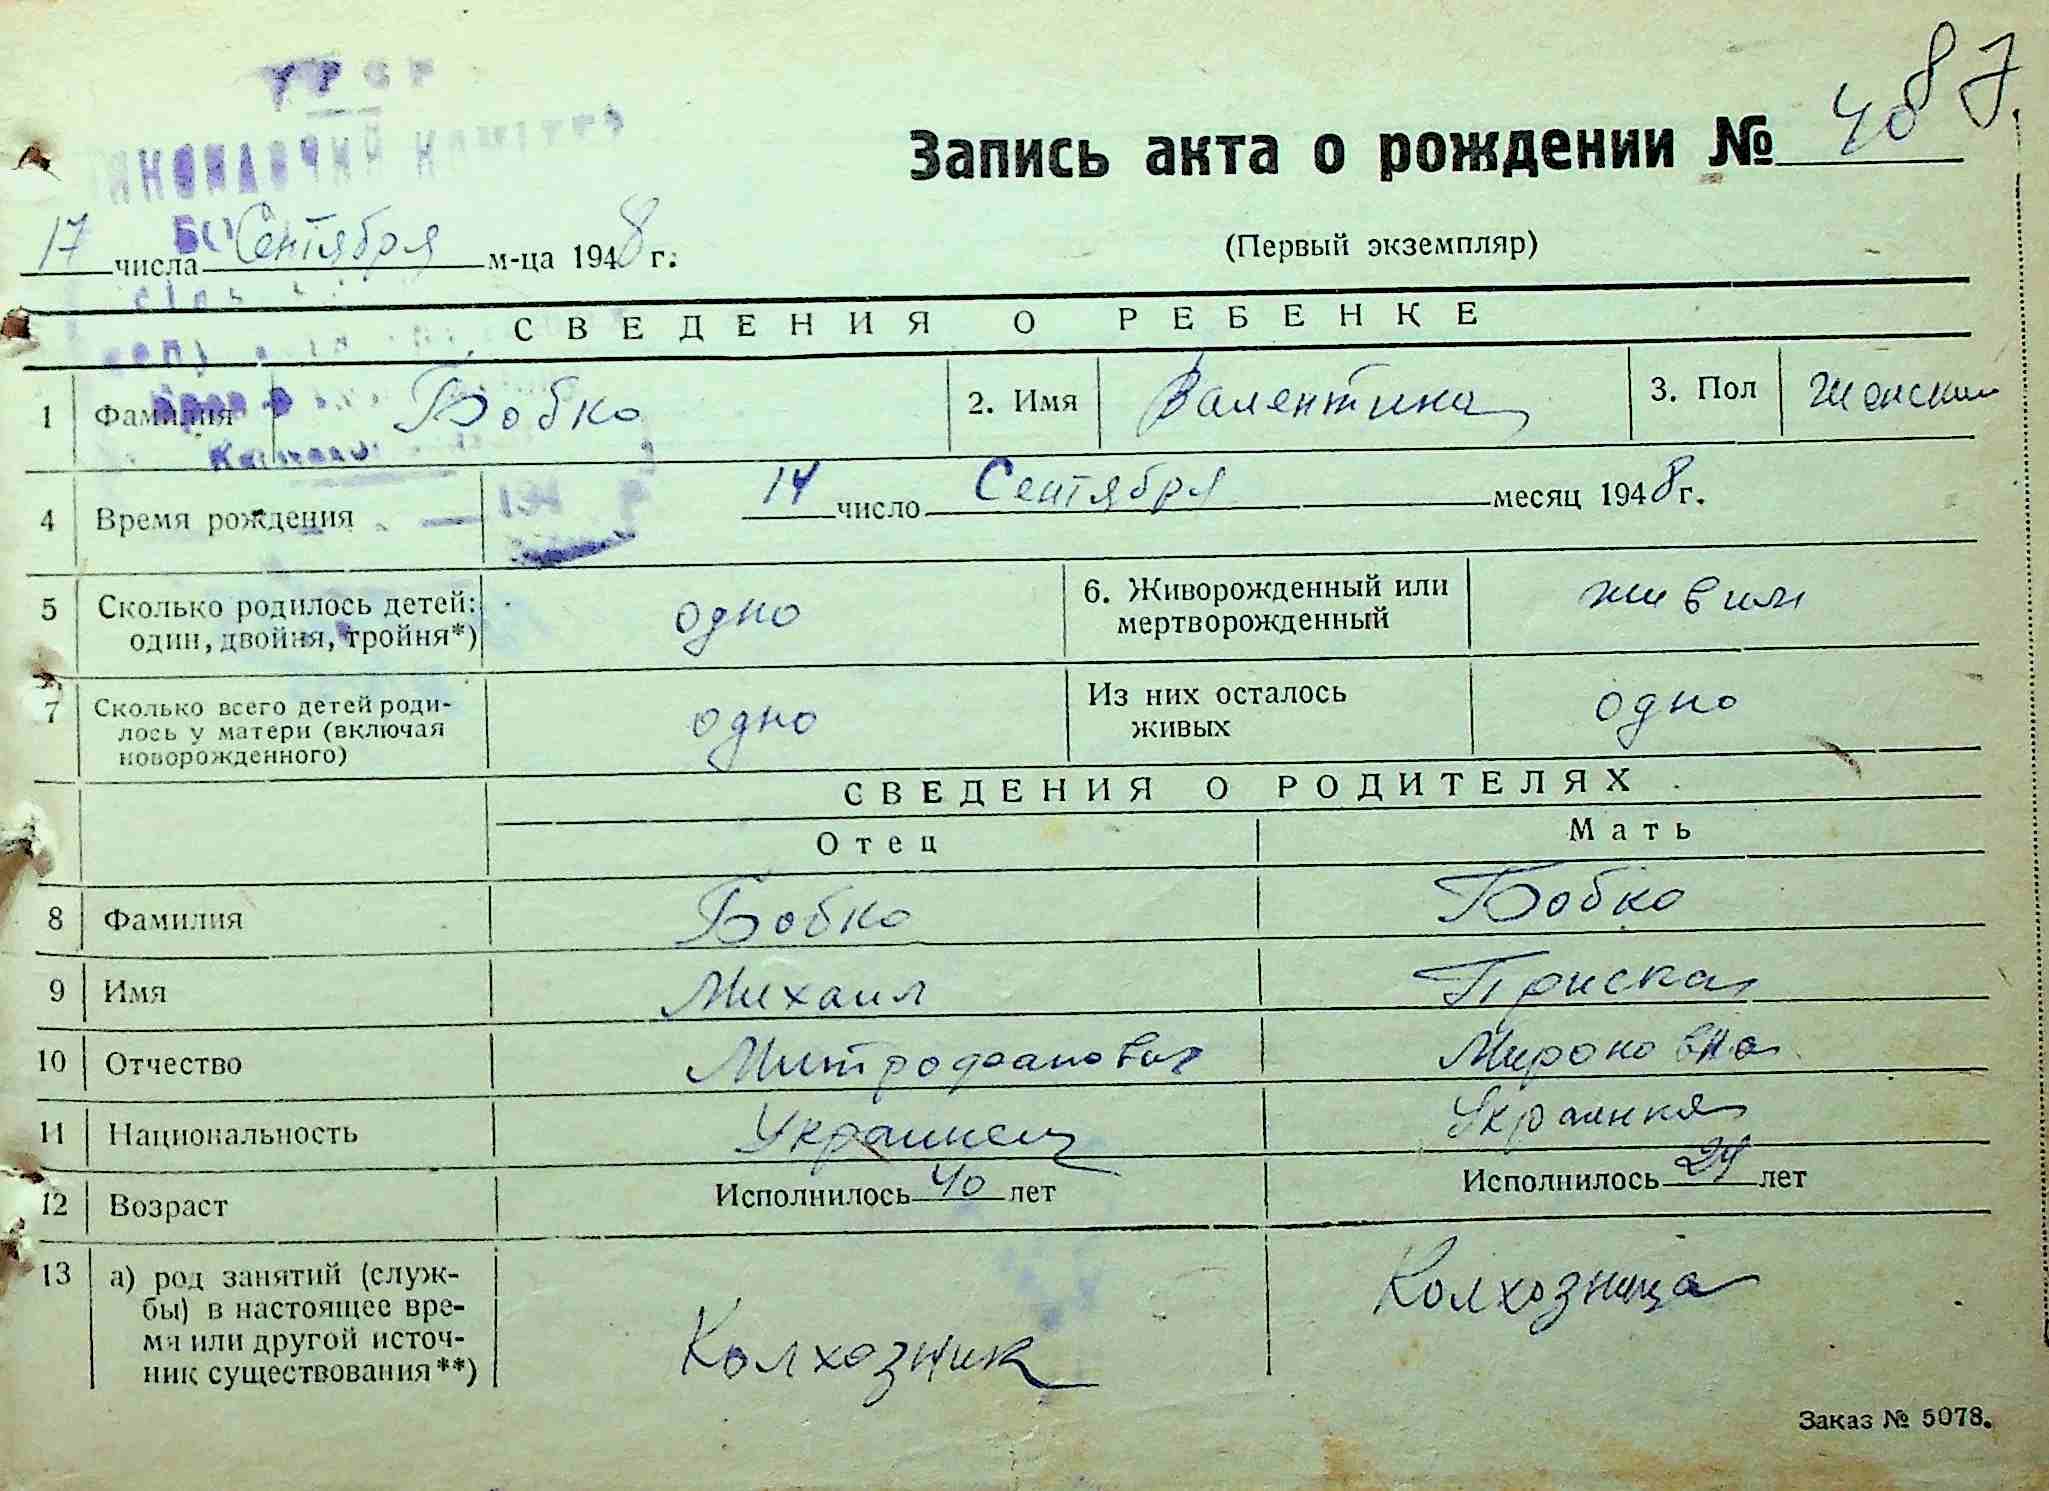 УРСР
Запись акта о рождении № 4087
17 числа Сентября м-ца 1948 г.
(Первый экземпляр)
СВЕДЕНИЯ О РЕБЕНКЕ
1 Фамилия Бобко 2. Имя Валентина 3. Пол Женский
4 Время рождения 14 число Сентября месяц 1948 г.
5 Сколько родилось детей: один, двойня, тройня*) одно 6. Живорожденный или мертворожденный
7 Сколько всего детей родилось у матери (включая новорожденного) одно Из них осталось живых одно
СВЕДЕНИЯ О РОДИТЕЛЯХ
Отец Мать
8 Фамилия Бобко Бобко
9 Имя Михаил Приска
10 Отчество Митрофанович Мироновна
11 Национальность Украинец Украинка
12 Возраст Исполнилось 40 лет Исполнилось 29 лет
13 а) род занятий (служ-
бы) в настоящее вре-
мя или другой источ-
ник существования**) Колхозник Колхозница
Заказ № 5078.